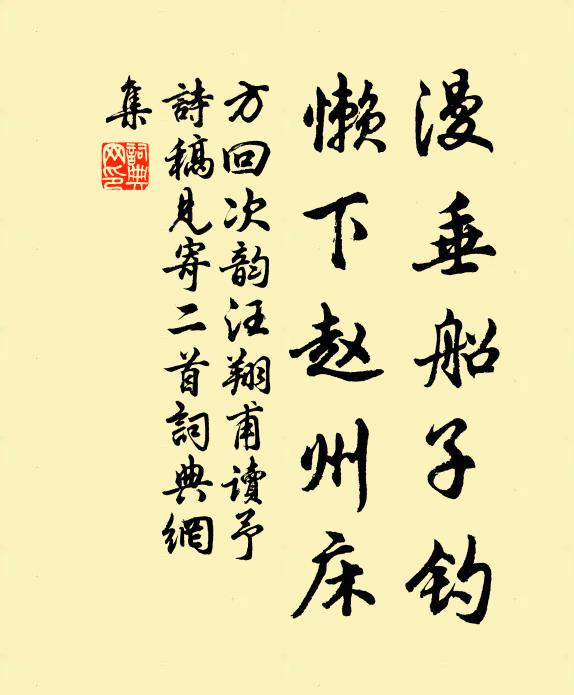 漫垂船子钓
懒下赵州床
方回次韵汪翔甫讀予
詩稿見寄二首詞典網
集
詞典
网印